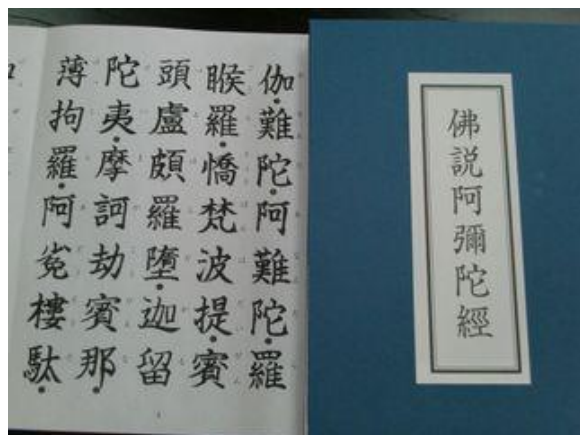 佛説阿彌陀經
伽難陀阿難陀羅
睺羅憍梵波提賓
頭盧頗羅墮迦留
陀夷摩訶劫賓那
薄拘羅阿㝹樓馱